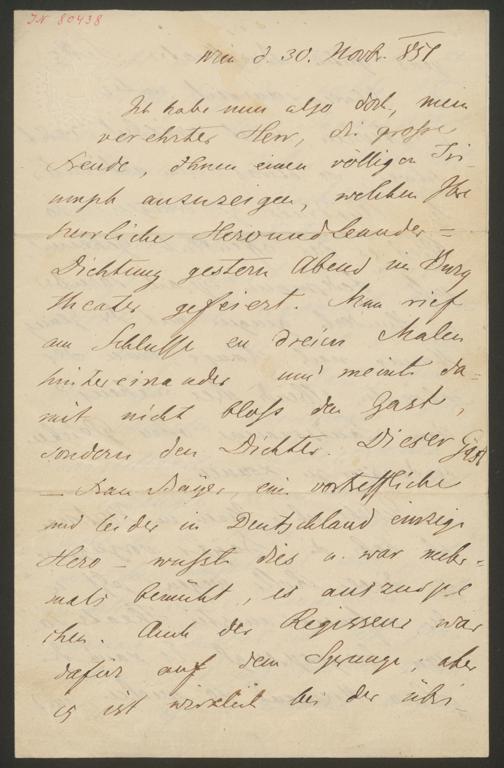 J.N 80438
Wien d. 30. Novbr. 851
Ich habe nun also doch, mein
verehrter Herr, die große
Freude, Ihnen einen völligen Tri-
umph anzuzeigen, welchen Ihre
herrliche Heround Leander=
Dichtung gestern Abend im Burg
theater gefeiert. Man rief
am Schlusse zu dreien Malen
hintereinander und meinte da-
mit nicht bloß den Gast,
sondern den Dichter. Dieser Gast
— Frau Bayer, eine vortreffliche
und leider in Deutschland einzige
Hero — wußte dies u. war mehr-
mals bemüht, es auszuspre
chen. Auch der Regisseur war
dafür auf dem Sprunge, aber
es ist wirklich bei der übri-